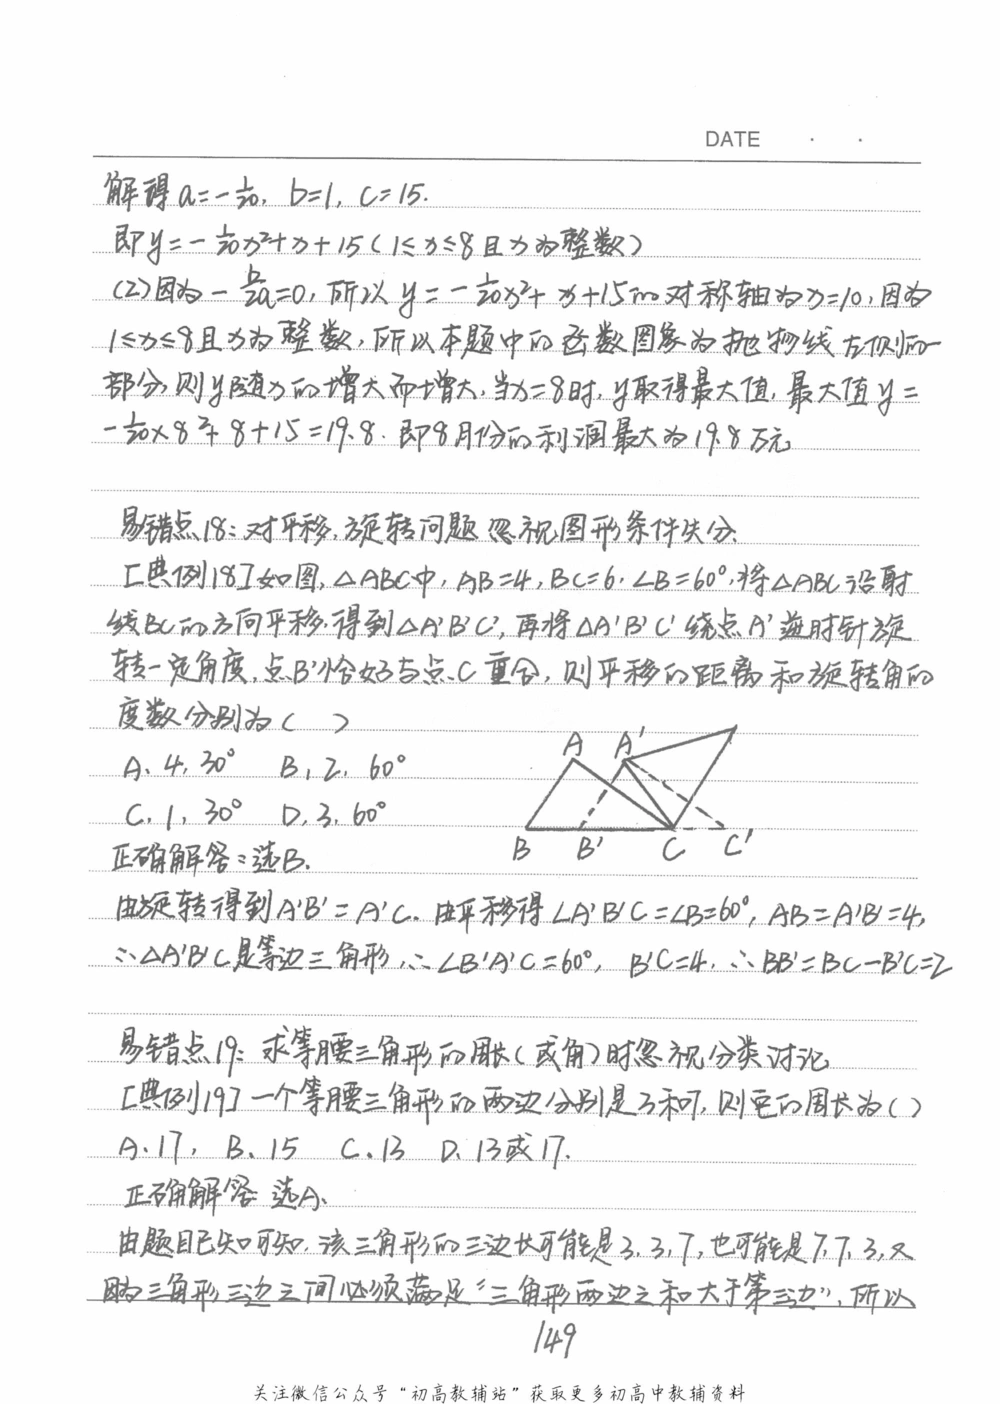 DATE · ·
解得a=-1/20, b=1, c=15.
即y=-1/20x²+x+15(1≤x≤8且x为整数)
(2)因为-b/2a=0,所以y=-1/20x²+x+15的对称轴为x=10,因为
1≤x≤8且x为整数,所以本题中的函数图象为抛物线左侧的一
部分,则y随x的增大而增大,当x=8时,y取得最大值,最大值y=
-1/20×8²+8+15=19.8.即8月份的利润最大为19.8万元
易错点18:对平移、旋转问题忽视图形条件失分.
[典例18]如图,△ABC中,AB=4,BC=6,∠B=60°,将△ABC沿射
线BC的方向平移,得到△A'B'C',再将△A'B'C'绕点A'逆时针旋
转一定角度,点B'恰好与点C重合,则平移的距离和旋转角的
度数分别为( )
A、4,30° B,2,60°
C,1,30° D.3,60°
A A'
B B' C C'
正确解答:选B.
由旋转得到A'B'=A'C.由平移得∠A'B'C=∠B=60°,AB=A'B'=4,
∴△A'B'C是等边三角形,∴∠B'A'C=60°, B'C=4,∴BB'=BC-B'C=2
易错点19:求等腰三角形的周长(或角)时忽视分类讨论
[典例19]一个等腰三角形的两边分别是3和7,则它的周长为( )
A.17, B、15 C.13 D.13或17.
正确解答:选A.
由题目已知可知,该三角形的三边长可能是3,3,7,也可能是7,7,3,又
因为三角形三边之间必须满足“三角形两边之和大于第三边”,所以
149
关注微信公众号“初高教辅站”获取更多初高中教辅资料